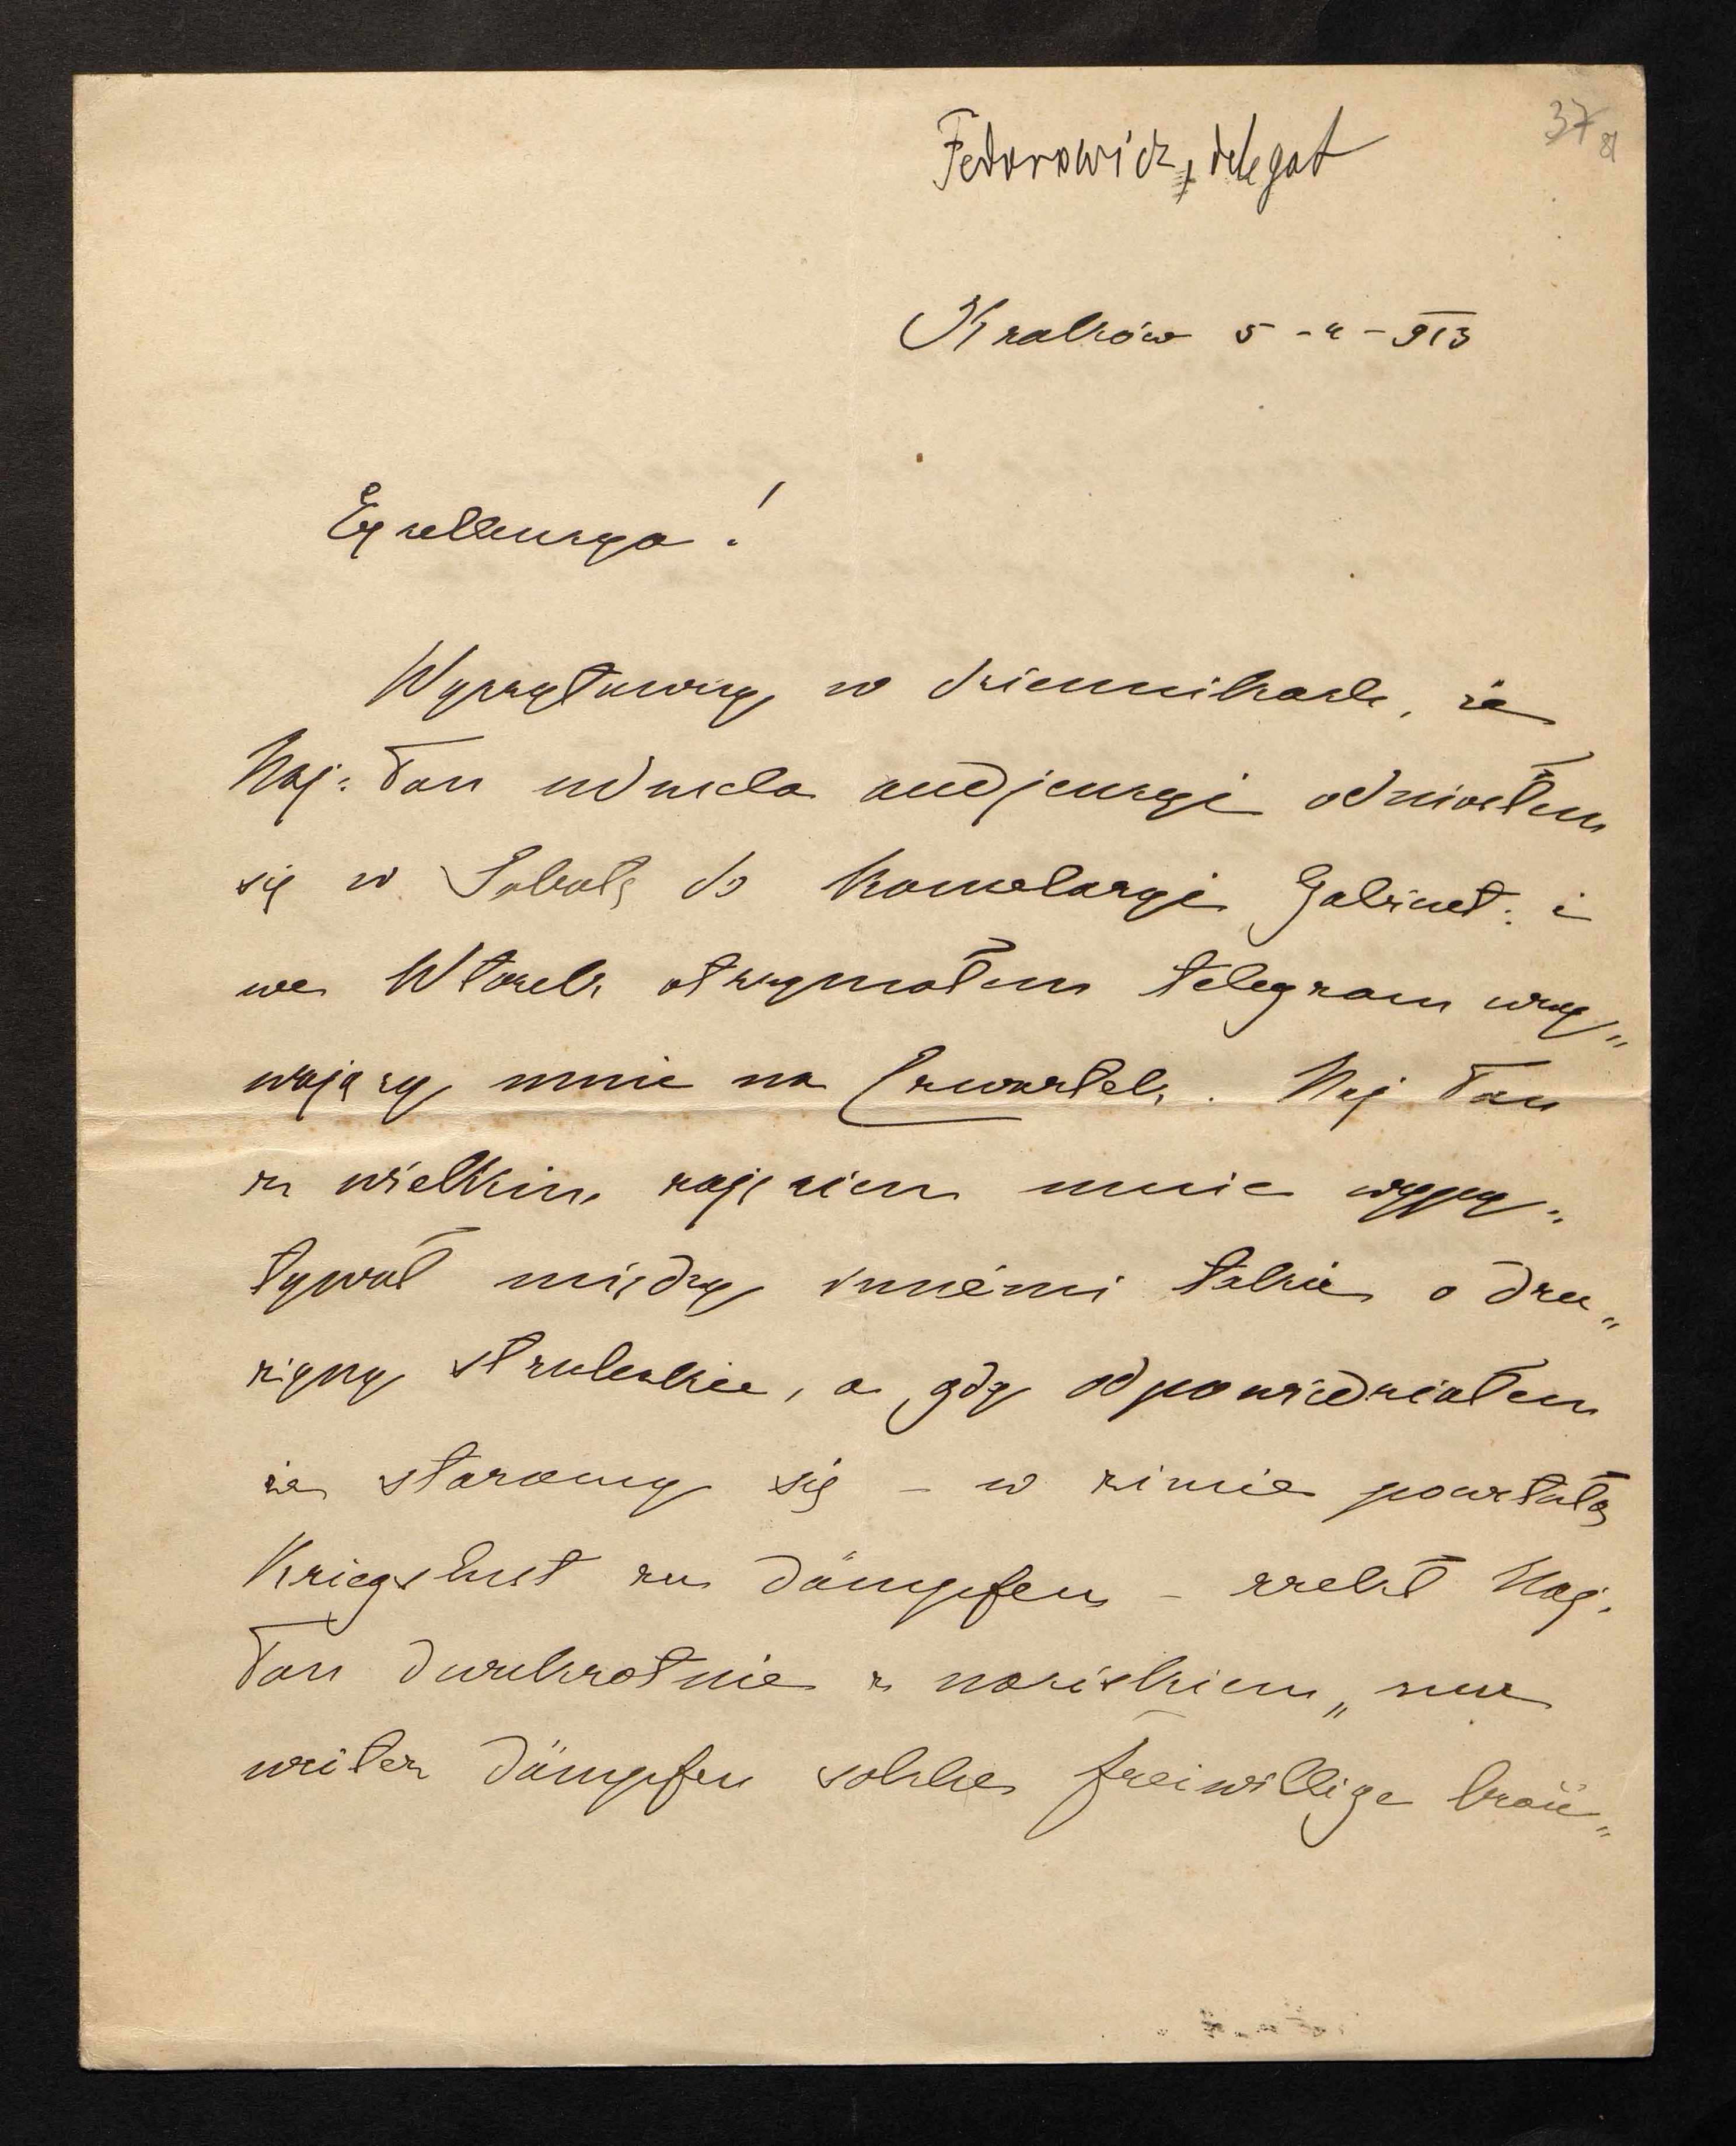 Fedorowicz, delegat
37
81
Kraków 5-4-913
Excellencyo!
Wyczytawszy w dziennikach, że
Naj: Pan udziela audjencyi odniosłem
się w Sobotę do Kancelaryi Gabinet: i
we Wtorek otrzymałem telegram wzy„
wający mnie na Czwartek. Naj Pan
z wielkim zajęciem mnie wypy„
tywał między innémi także o dru„
żyny strzeleckie, a gdy odpowiedziałem
że staramy się – w zimie powstałą
Kriegslust zu dämpfen – rzekł Naj.
Pan dwukrotnie z naciskiem „nur
weiter dämpfen solche freiwillige